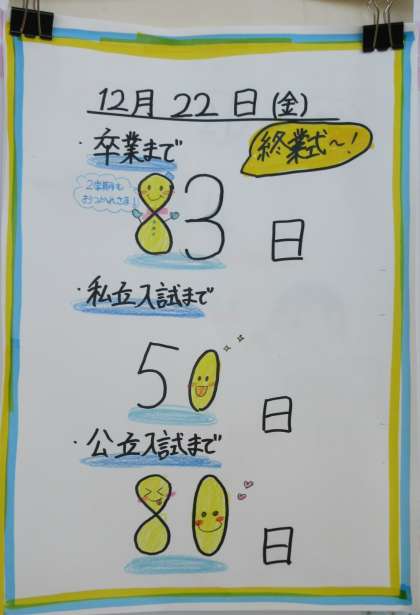 12月 22日(金)
終業式〜!
・卒業まで
2学期も
おつかれさま!
83日
・私立入試まで
50日
・公立入試まで
80日